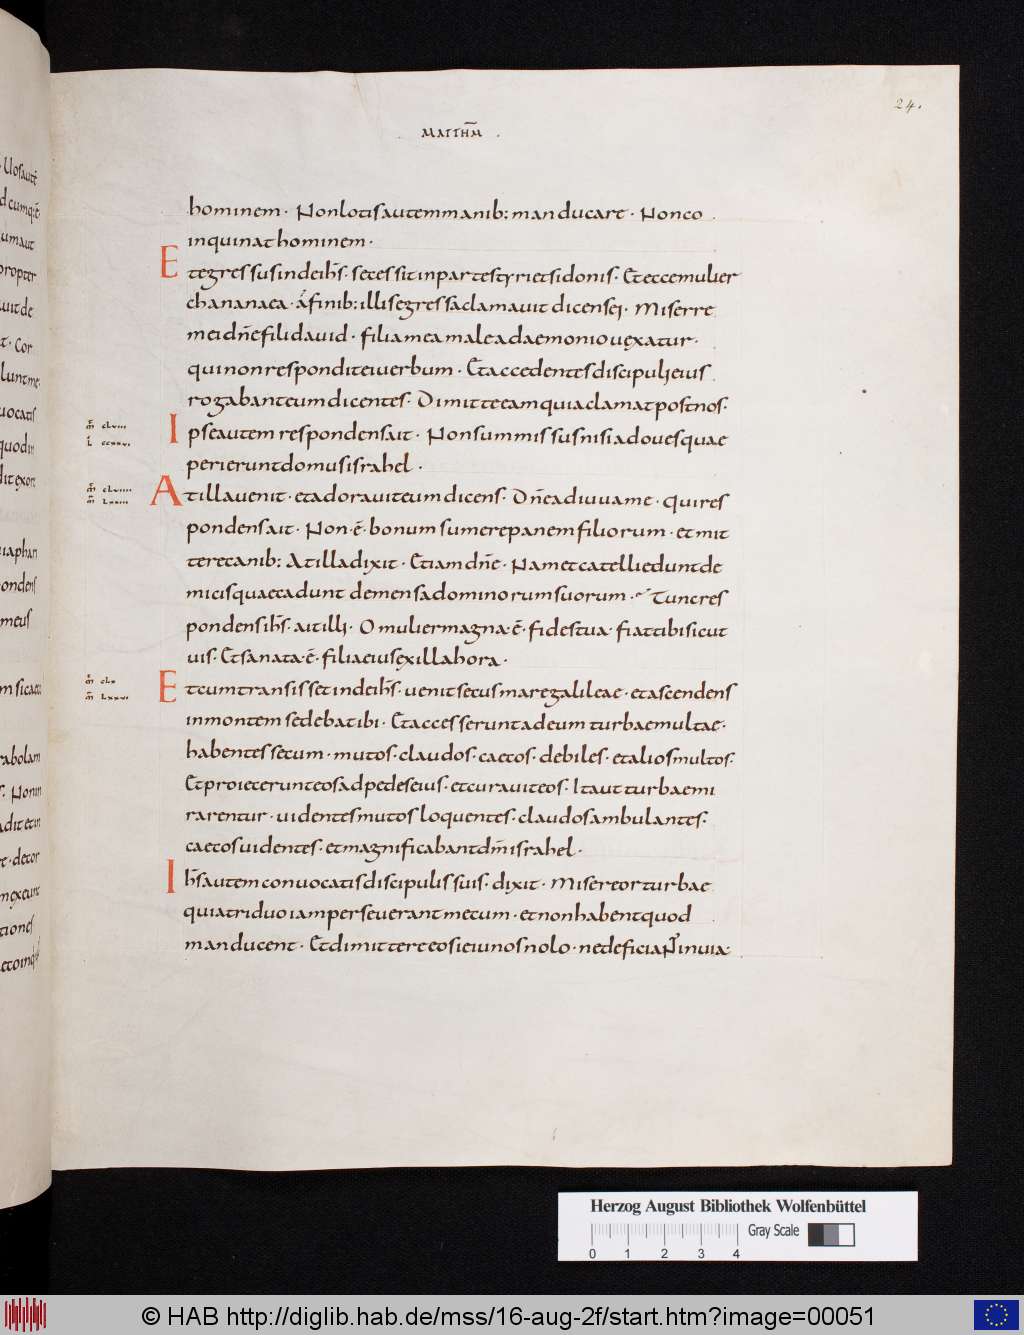 24.
MATTHM̄ .
hominem · Non lotis autem manib: manducare · Non co
inquinat hominem ·
Et egressus inde ihs̄ · secessit in partes tyri et sidonis · Et ecce mulier
chananaea · a finib: illis egressa clamauit dicens ei · Miserere
mei dn̄e fili dauid · filia mea male a daemonio uexatur ·
qui non respondit ei uerbum · Et accedentes discipuli eius
rogabant eum dicentes · Dimitte eam quia clamat post nos ·
m̄ clviii
l̄ ccxxvi
Ipse autem respondens ait · Non sum missus nisi ad oues quae
perierunt domus israhel ·
m̄ clviiii
m̄ lxxiii
At illa uenit · et adorauit eum dicens · Dn̄e adiuua me · qui res
pondens ait · Non · ē · bonum sumere panem filiorum · et mit
tere canib: At illa dixit · Etiam dn̄e · Nam et catelli edunt de
micis quae cadunt de mensa dominorum suorum · Tunc res
pondens ihs̄ · ait illi · O mulier magna · ē · fides tua · fiat tibi sicut
uis · Et sanata · ē · filia eius ex illa hora ·
m̄ clx
m̄ lxxvi
Et cum transisset inde ihs̄ · uenit secus mare galileae · et ascendens
in montem sedebat ibi · Et accesserunt ad eum turbae multae ·
habentes secum · mutos · claudos · caecos · debiles · et alios multos ·
Et proiecerunt eos ad pedes eius · et curauit eos · Ita ut turbae mi
rarentur · uidentes mutos loquentes · claudos ambulantes ·
caecos uidentes · et magnificabant dm̄ israhel ·
Ihs̄ autem conuocatis discipulis suis · dixit · Misereor turbae
quia triduo iam perseuerant mecum · et non habent quod
manducent · Et dimittere eos ieiunos nolo · ne deficiant in uia ·
Herzog August Bibliothek Wolfenbüttel
Gray Scale
0 1 2 3 4
© HAB http://diglib.hab.de/mss/16-aug-2f/start.htm?image=00051